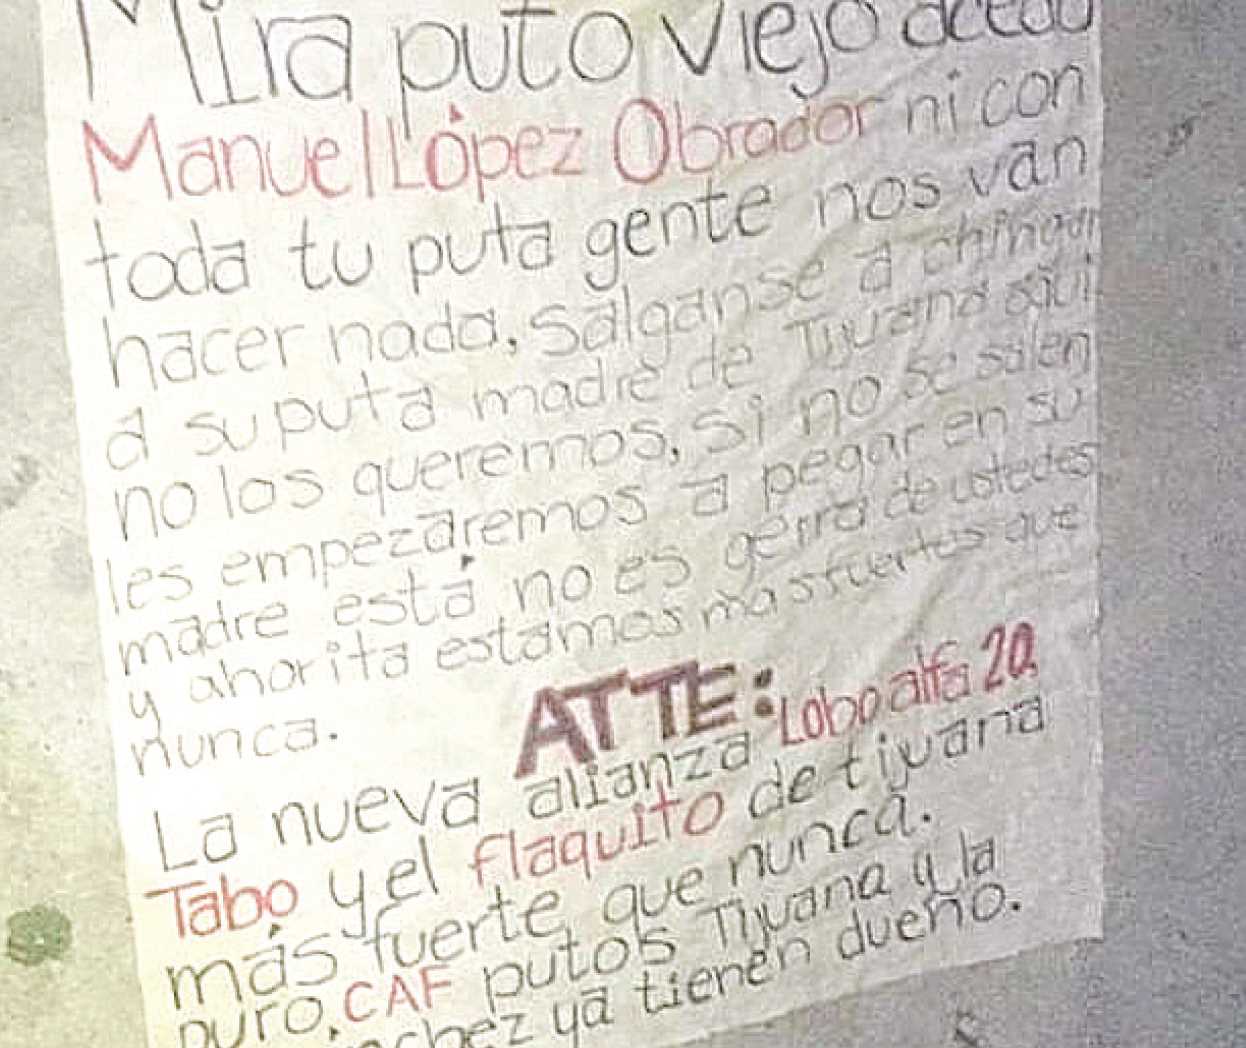 Mira puto viejo
Manuel López Obrador ni con
toda tu puta gente nos van
hacer nada, salganse a chingar
a su puta madre de Tijuana aqui
no los queremos, si no se salen
les empezaremos a pegar en su
madre esta no es gerra de ustedes
y ahorita estamos mas fuertes que
nunca.
ATTE: Lobo alfa 20.
La nueva alianza
Tabo y el flaquito de tijuana
más fuerte que nunca.
puro. CAF putos Tijuana y la
ya tienen dueño.